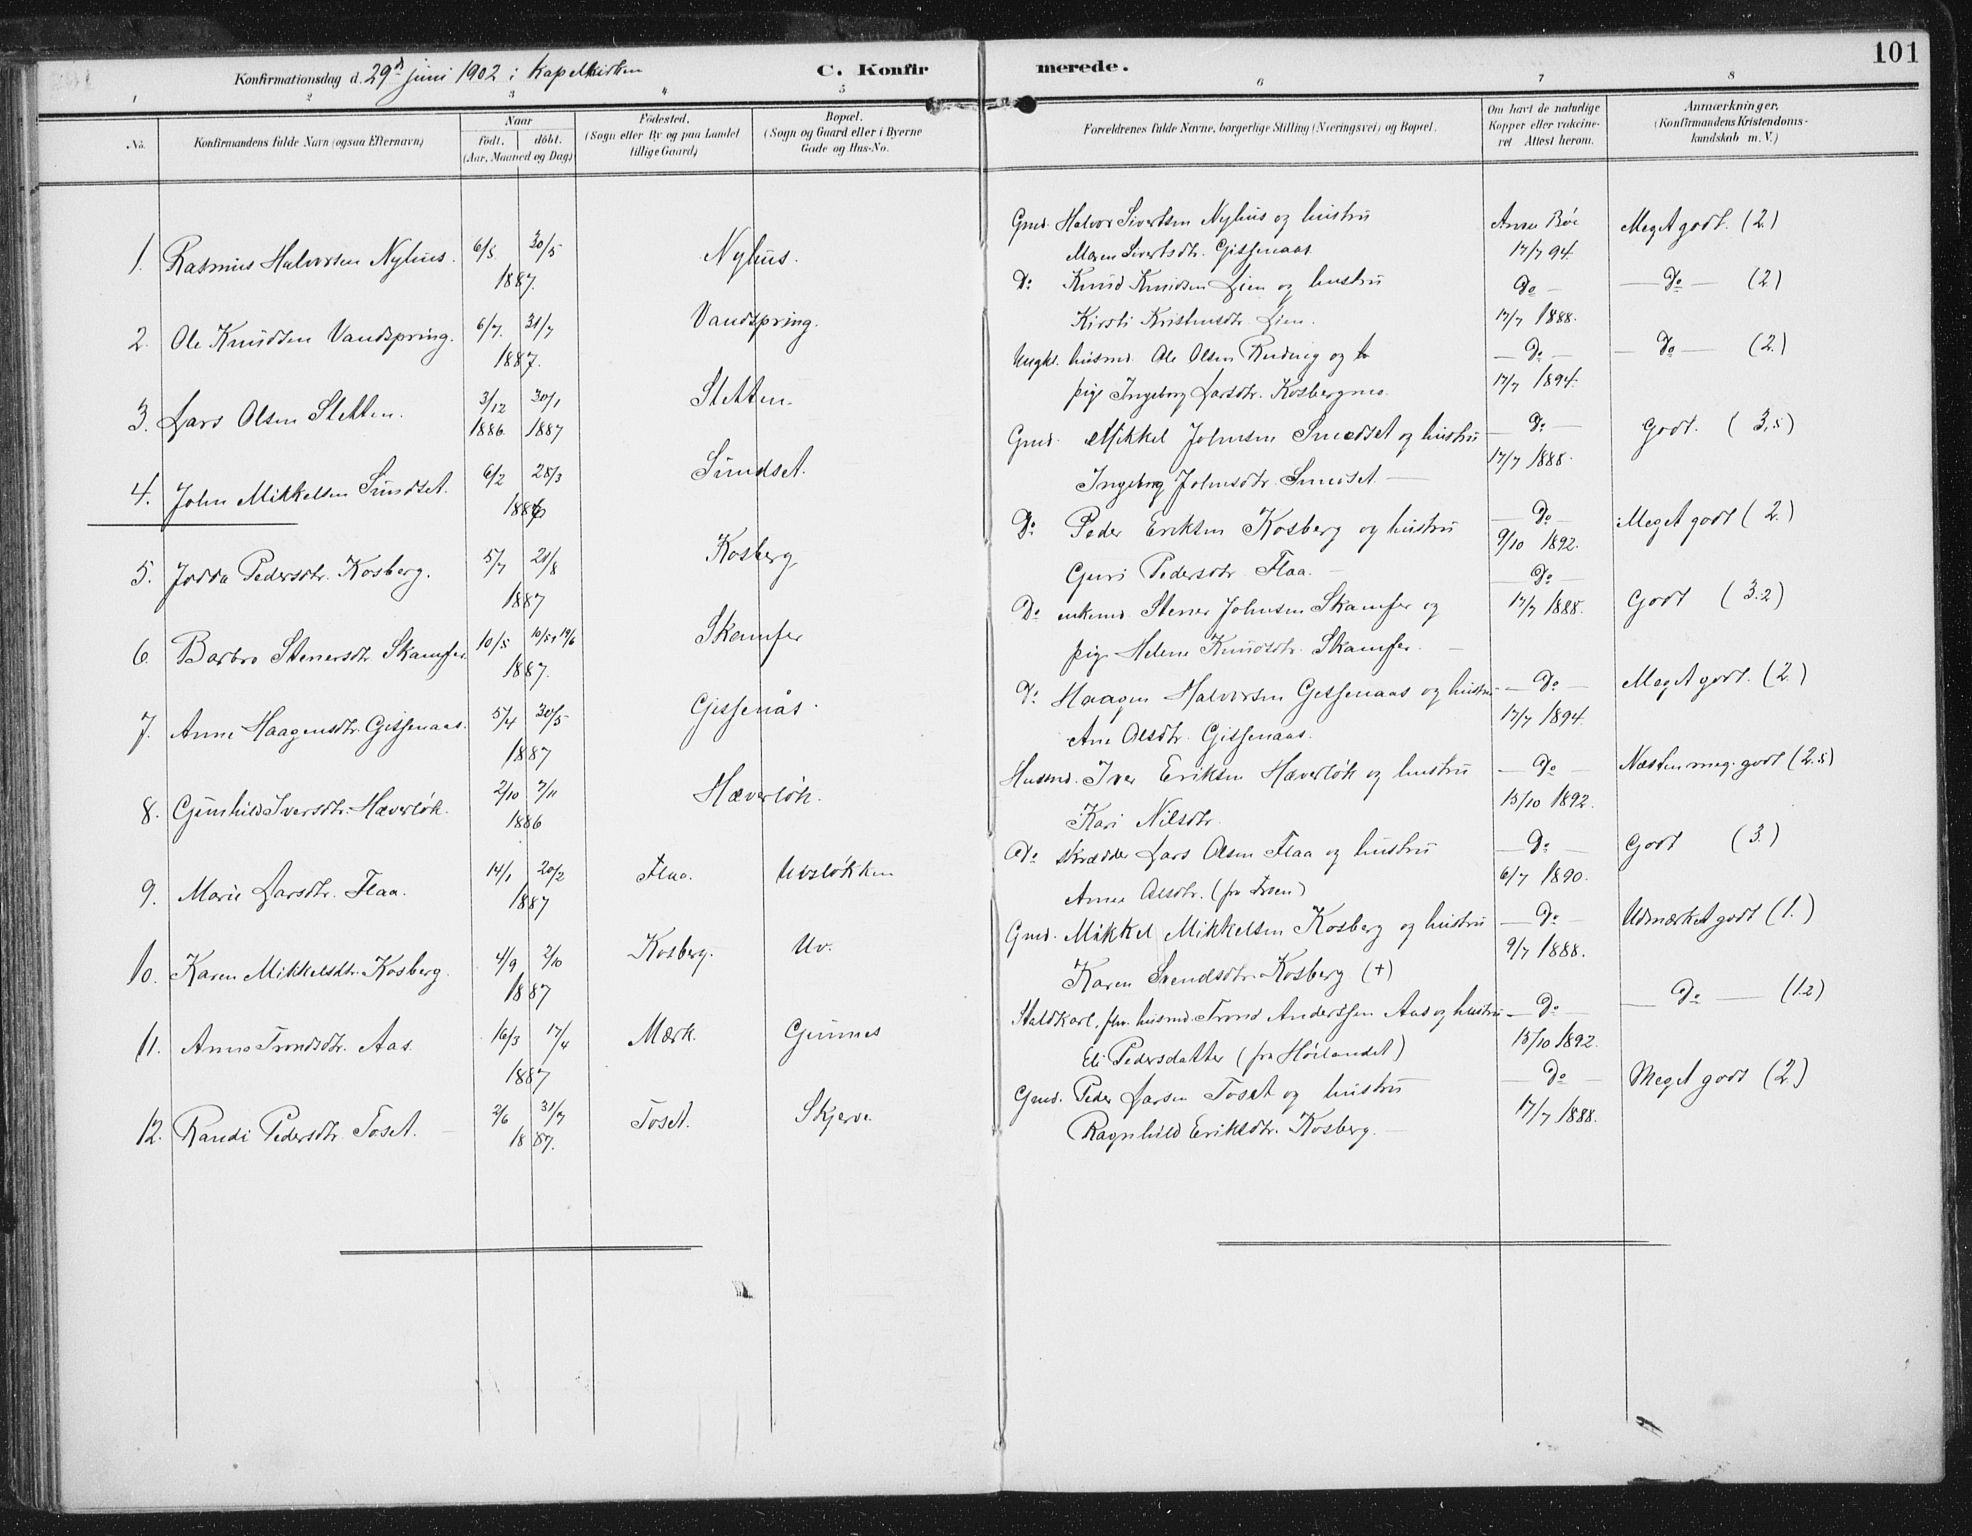 101
Konfirmationsdag d. 29d juni 1902 i Kapelkirken
C. Konfirmerede.
1 2 3 4 5 6 7 8
No. Konfirmandens fulde Navn (ogsaa Efternavn) Naar födt. döbt. (Aar, Maaned og Dag) Födested. (Sogn eller By og paa Landet tillige Gaard) Bopæl. (Sogn og Gaard eller i Byerne Gade og Hus-No. Forældrenes fulde Navne, borgerlige Stilling (Næringsvei) og Bopæl. Om havt de naturlige Kopper eller vakcineret Attest herom. Anmærkninger. (Konfirmandens Kristendomskundskab m. V.)
1. Rasmus Halvorsen Nyhus. 6/5 30/5 1887. Nyhus. Gmd. Halvor Sivertsen Nyhus og hustru Anne Böe Meget godt. (2.)
Maren Sivertsdtr. Gissenaas 17/7 94.
2. Ole Knudsen Vandspring. 6/7. 31/7 1887. Vandspring. Do Knud Knudsen Lien og hustru Do — Do — (2)
Kirsti Kristensdtr. Lien. 17/7 1888.
3. Lars Olsen Sletten. 3/12 1886 30/1 1887 Sletten. Ungk. husmd. Ole Olsen — Do — — Do — (2.)
pige Ingeborg Larsdtr. Kosbergnes. 17/7 1894.
4. John Mikkelsen Sundset. 6/2 28/3 Sundset. Gmd. Mikkel Johnsen Sundset og hustru — Do — Godt. (3,5)
Ingeborg Johnsdtr. Sundset — 17/7 1888.
5. Jodda Pedersdtr. Kosberg. 5/7 21/8 1887 Kosberg Do Peder Eriksen Kosberg og hustru — Do — Meget godt (2.)
Guri Pedersdtr. Flaa. — 9/10 1892.
6. Barbro Stenersdtr. Skamfer. 10/5 10/5, 19/6 1887. Skamfer Do enkemd. Stener Johnsen Skamfer og — Do — Godt (3.2)
pige Helene Knudsdtr. Skamfer. — 17/7 1888.
7. Anne Haagensdtr. Gissenaas. 5/4 30/5 1887 Gissenås. Do Haagen Halvorsen Gissenaas og hustru — Do — Meget godt. (2.)
Ane Olsdtr. Gissenaas. 17/7 1894.
8. Gunhild Iversdtr. Hæverlök. 2/10 7/11 1886 Hæverlök. Husmd. Iver Eriksen Hæverlök og hustru — Do — Næsten meg. godt (2.5)
Kari Nilsdtr. 15/10 1892.
9. Marie Larsdtr. Flaa. 14/1 20/2 1887 Flaa. Uvsløkken Do skrædder Lars Olsen Flaa og hustru — Do — Godt (3.)
Anne Olsdtr. (fra Troen) 6/7 1890.
10. Karen Mikkelsdtr. Kosberg. 4/9 2/10 1887 Kosberg. Uv. Gmd. Mikkel Mikkelsen Kosberg og hustru — Do — Udmærket godt (1.)
Karen Svendsdtr. Kosberg (+) 9/7 1888.
11. Anne Trondsdtr. Aas. 16/3 17/4 1887 Mærk. Gunnes Staldkarl, fhv. husmd. Trond Anderssen Aas og hustru — Do — — Do — (1.2)
Eli Pedersdatter (fra Høilandet) 15/10 1892.
12. Randi Pedersdtr. Toset. — 2/6 31/7 1887. Toset. Skjerve Gmd. Peder Larsen Toset og hustru — Do — Meget godt (2.)
Ragnhild Eriksdtr. Kosberg. — 17/7 1888.